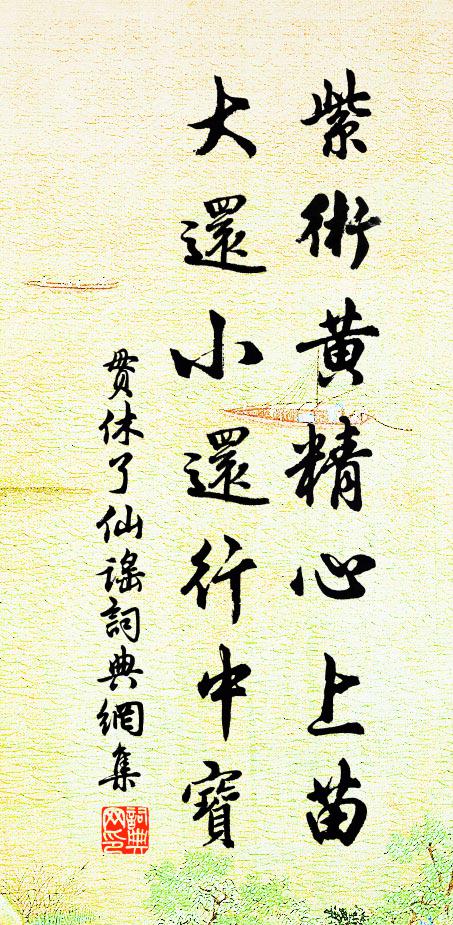 紫術黄精心上苗
大還小還行中寶
貫休了仙謠詞典網集
詞典網印